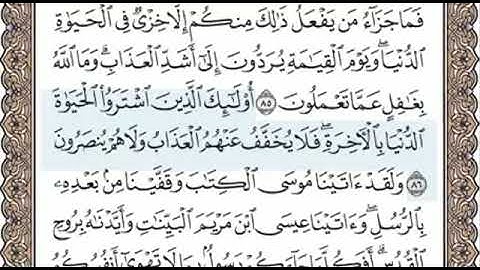 فَمَا جَزَآءُ مَن يَفْعَلُ ذَٰلِكَ مِنكُمْ إِلَّا خِزْىٌ فِى ٱلْحَيَوٰةِ
ٱلدُّنْيَا ۖ وَيَوْمَ ٱلْقِيَٰمَةِ يُرَدُّونَ إِلَىٰٓ أَشَدِّ ٱلْعَذَابِ ۗ وَمَا ٱللَّهُ
بِغَٰفِلٍ عَمَّا تَعْمَلُونَ ٨٥ أُو۟لَٰٓئِكَ ٱلَّذِينَ ٱشْتَرَوُا۟ ٱلْحَيَوٰةَ
ٱلدُّنْيَا بِٱلْءَاخِرَةِ ۖ فَلَا يُخَفَّفُ عَنْهُمُ ٱلْعَذَابُ وَلَا هُمْ يُنصَرُونَ
٨٦ وَلَقَدْ ءَاتَيْنَا مُوسَى ٱلْكِتَٰبَ وَقَفَّيْنَا مِنۢ بَعْدِهِۦ
بِٱلرُّسُلِ ۖ وَءَاتَيْنَا عِيسَى ٱبْنَ مَرْيَمَ ٱلْبَيِّنَٰتِ وَأَيَّدْنَٰهُ بِرُوحِ
ٱلْقُدُسِ ۗ أَفَكُلَّمَا جَآءَكُمْ رَسُولٌۢ بِمَا لَا تَهْوَىٰٓ أَنفُسُكُمُ